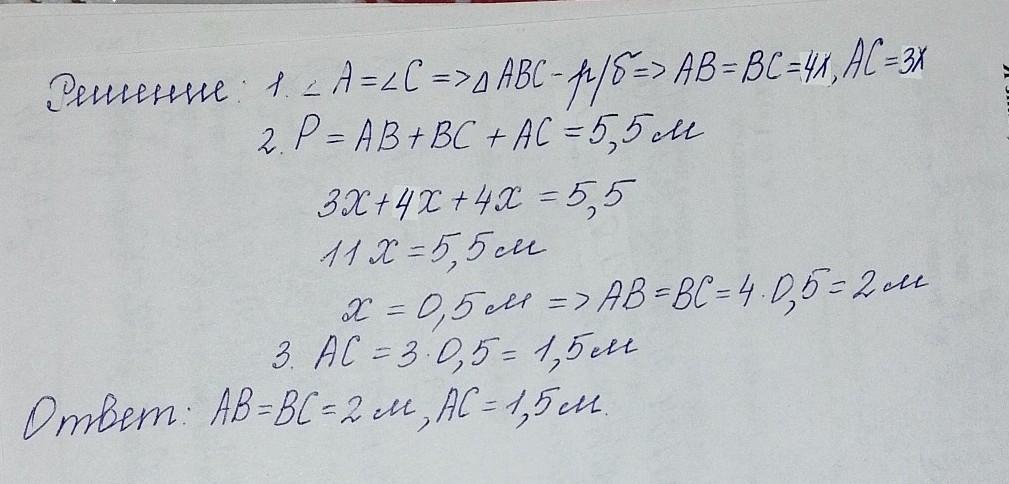 Решение: 1. ∠A=∠C=>△ABC-р/б=>AB=BC=4x, AC=3x
2. P=AB+BC+AC=5,5м
3x+4x+4x=5,5
11x=5,5м
x=0,5м=>AB=BC=4·0,5=2м
3. AC=3·0,5=1,5м
Ответ: AB=BC=2м, AC=1,5м.